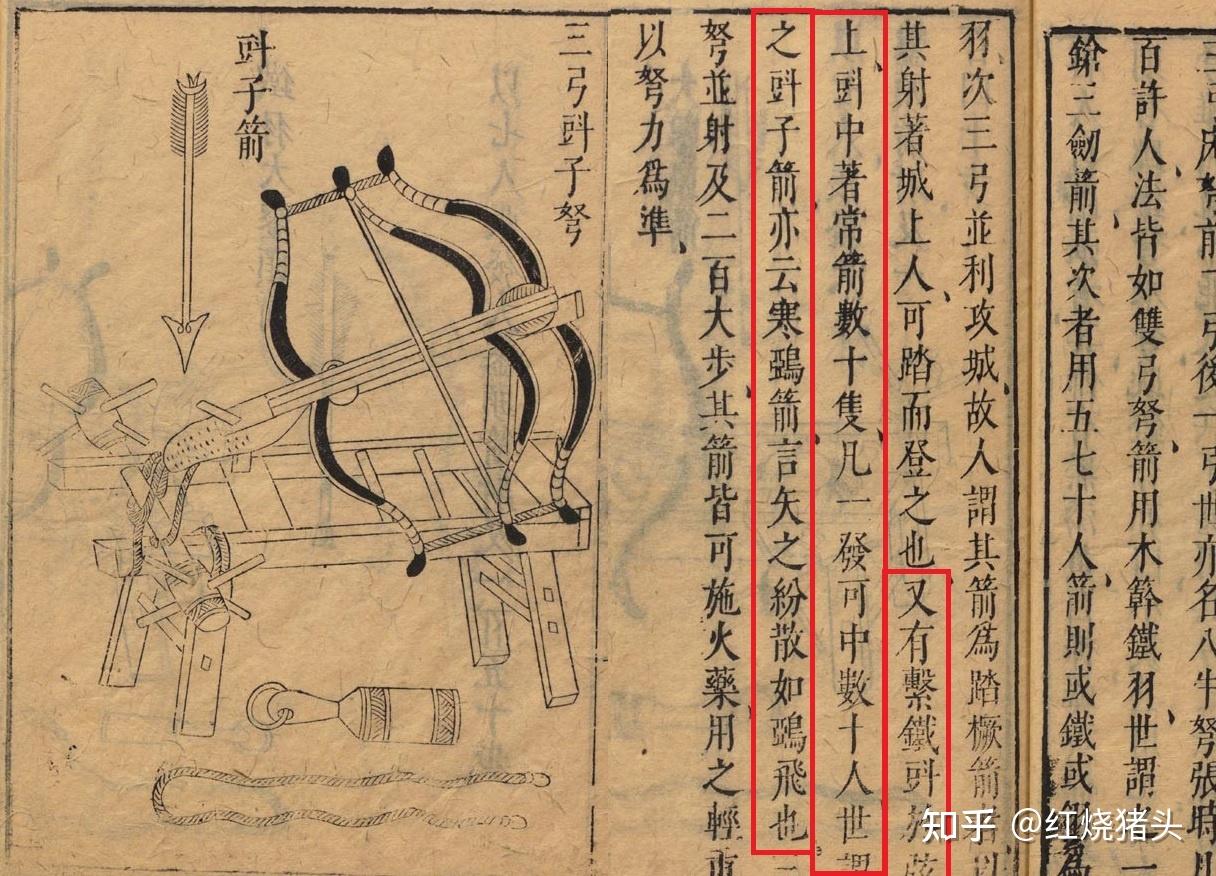 弓床弩前二弓後一弓世亦名八牛弩張時
百許人法皆如雙弓弩箭用木簳鐵羽世謂之一
鎗三劒箭其次者用五七十人箭則或鐵或翎爲
羽次三弓並利攻城故人謂其箭爲踏橛箭者以
其射著城上人可踏而登之也又有繫鐵㪷於弦
上㪷中著常箭數十隻凡一發可中數十人世謂
之㪷子箭亦云寒鵶箭言矢之紛散如鵶飛也三
弩並射及二百大步其箭皆可施火藥用之輕重
以弩力爲準
三弓㪷子弩
㪷子箭
知乎 @红烧猪头